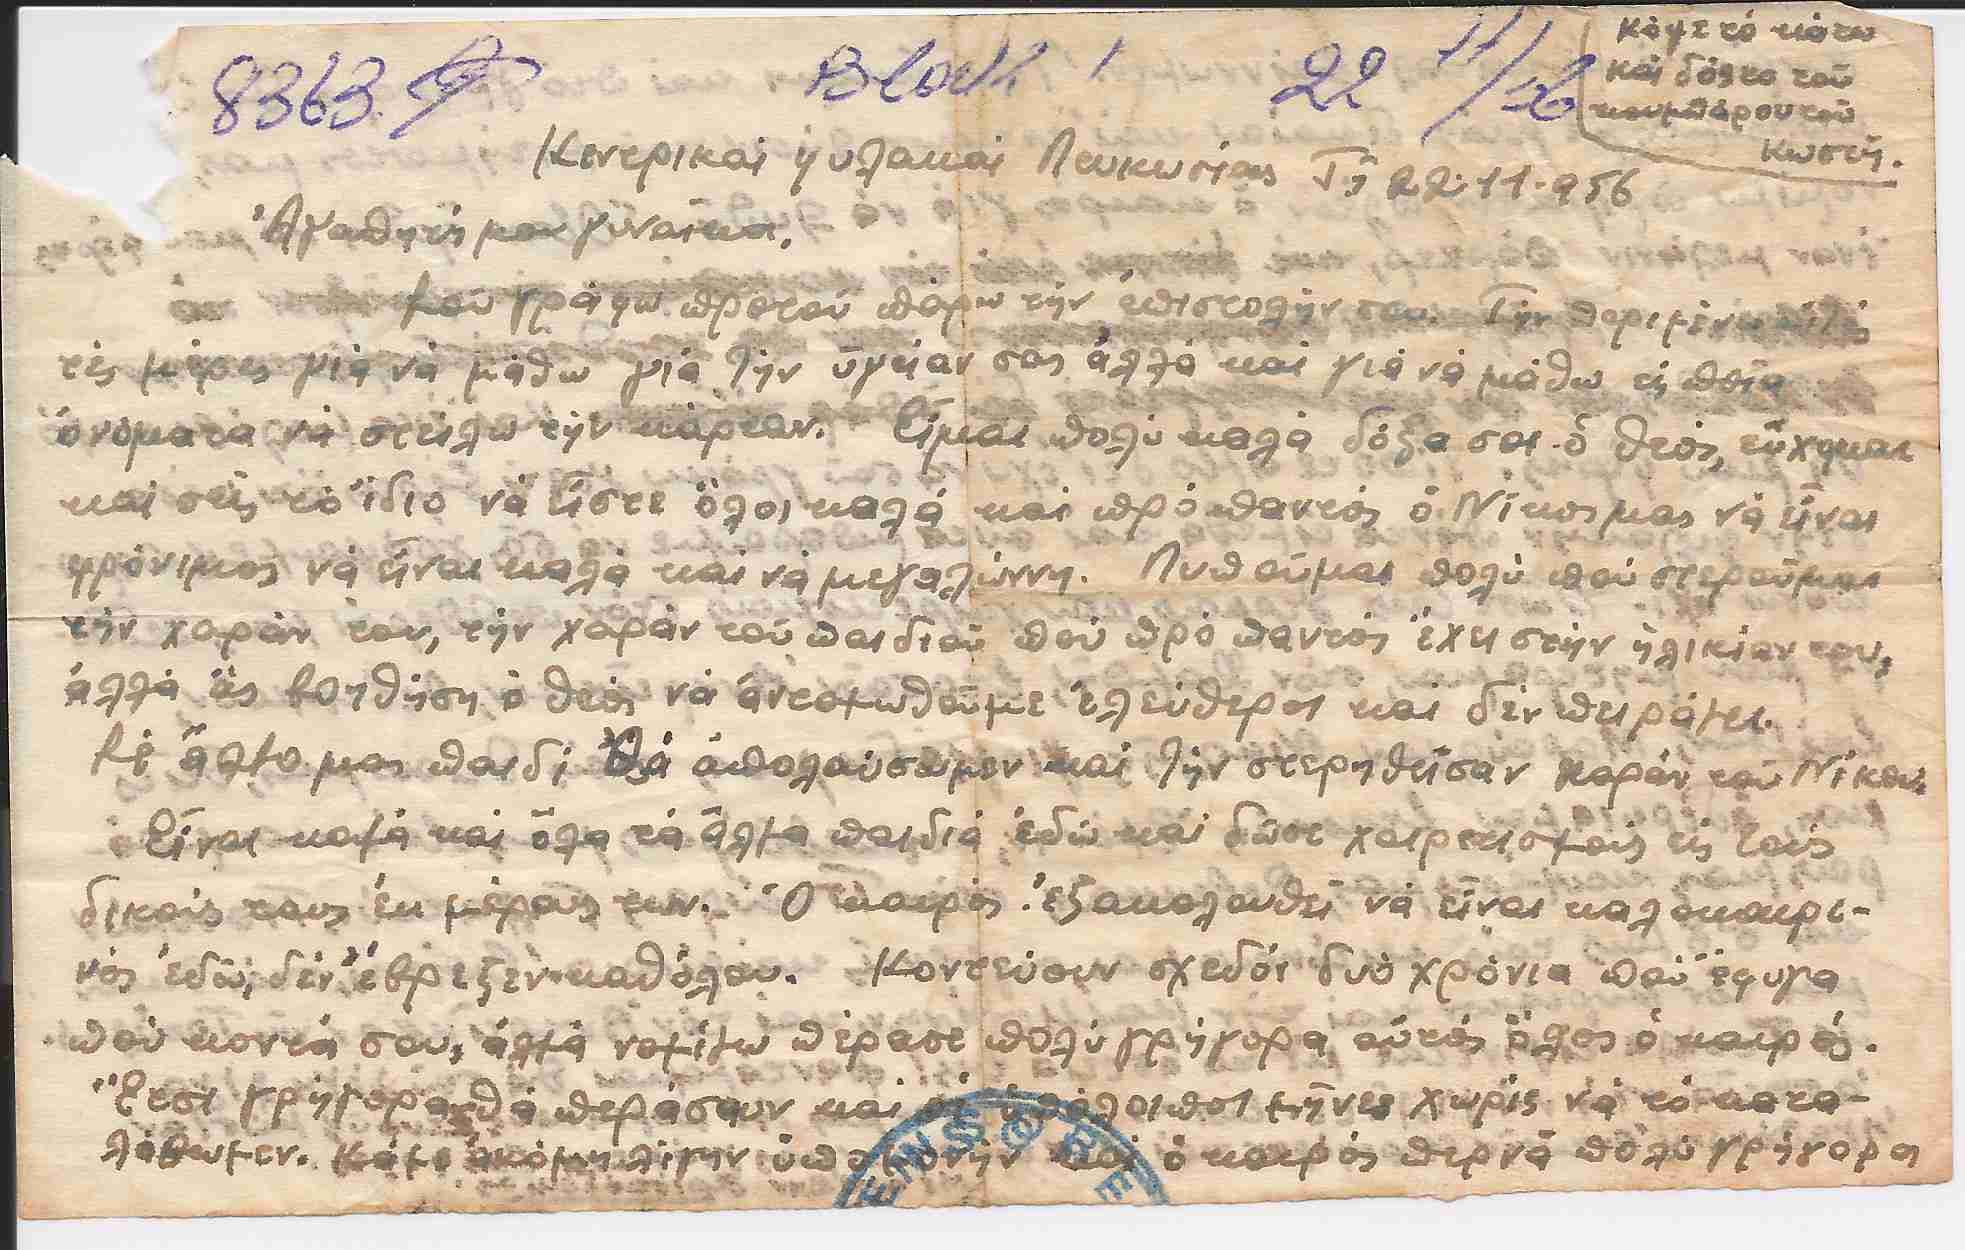 8363
Block 1
22/11/56
Κόψε τό κάτω
καί δόστο τοῦ
κουμπάρου τοῦ
Κωστῆ.
Κεντρικαί φυλακαί Λευκωσίας Τῇ 22.11.956
Ἀγαπητή μου γυναῖκα,
Σοῦ γράφω προτοῦ πάρω τήν ἐπιστολήν σου. Τήν περιμένω αὐτές
τές μέρες γιά νά μάθω γιά τήν ὑγείαν σας ἀλλά καί γιά νά μάθω εἰς ποῖα
ὀνόματα νά στείλω τήν κάρταν. Εἶμαι πολύ καλά δόξα σοι ὁ θεός, εὔχομαι
καί σεῖς τό ἴδιο νά εἶστε ὅλοι καλά καί πρό παντός ὁ Νίκος μας νά εἶναι
φρόνιμος νά εἶναι καλά καί νά μεγαλώνη. Λυποῦμαι πολύ πού στεροῦμαι
τήν χαράν του, τήν χαράν τοῦ παιδιοῦ πού πρό παντός ἔχει στήν ἡλικίαν του,
ἀλλά ἄς βοηθήση ὁ θεός νά ἀνταμωθοῦμε ἐλεύθεροι καί δέν πειράζει.
Σέ ἄλλο μας παιδί θά ἀπολαύσωμεν καί τήν στερηθεῖσαν χαράν τοῦ Νίκου.
Εἶναι καλά καί ὅλα τά ἄλλα παιδιά ἐδῶ καί δῶσε χαιρετισμούς εἰς τούς
δικούς τους ἐκ μέρους των. Ὁ καιρός ἐξακολουθεῖ νά εἶναι καλοκαιρι-
νός ἐδῶ, δέν ἔβρεξεν καθόλου. Κοντεύουν σχεδόν δυό χρόνια πού ἔφυγα
πού κοντά σου, ἀλλά νομίζω πέρασε πολύ γρήγορα αὐτός ὅλος ὁ καιρός.
Ἔτσι γρήγορα θά περάσουν καί οἱ ὑπόλοιποι μῆνες χωρίς νά τό κατα-
λάβωμεν. Κάμε ἀκόμη λίγην ὑπομονήν καί ὁ καιρός περνᾶ πολύ γρήγορα